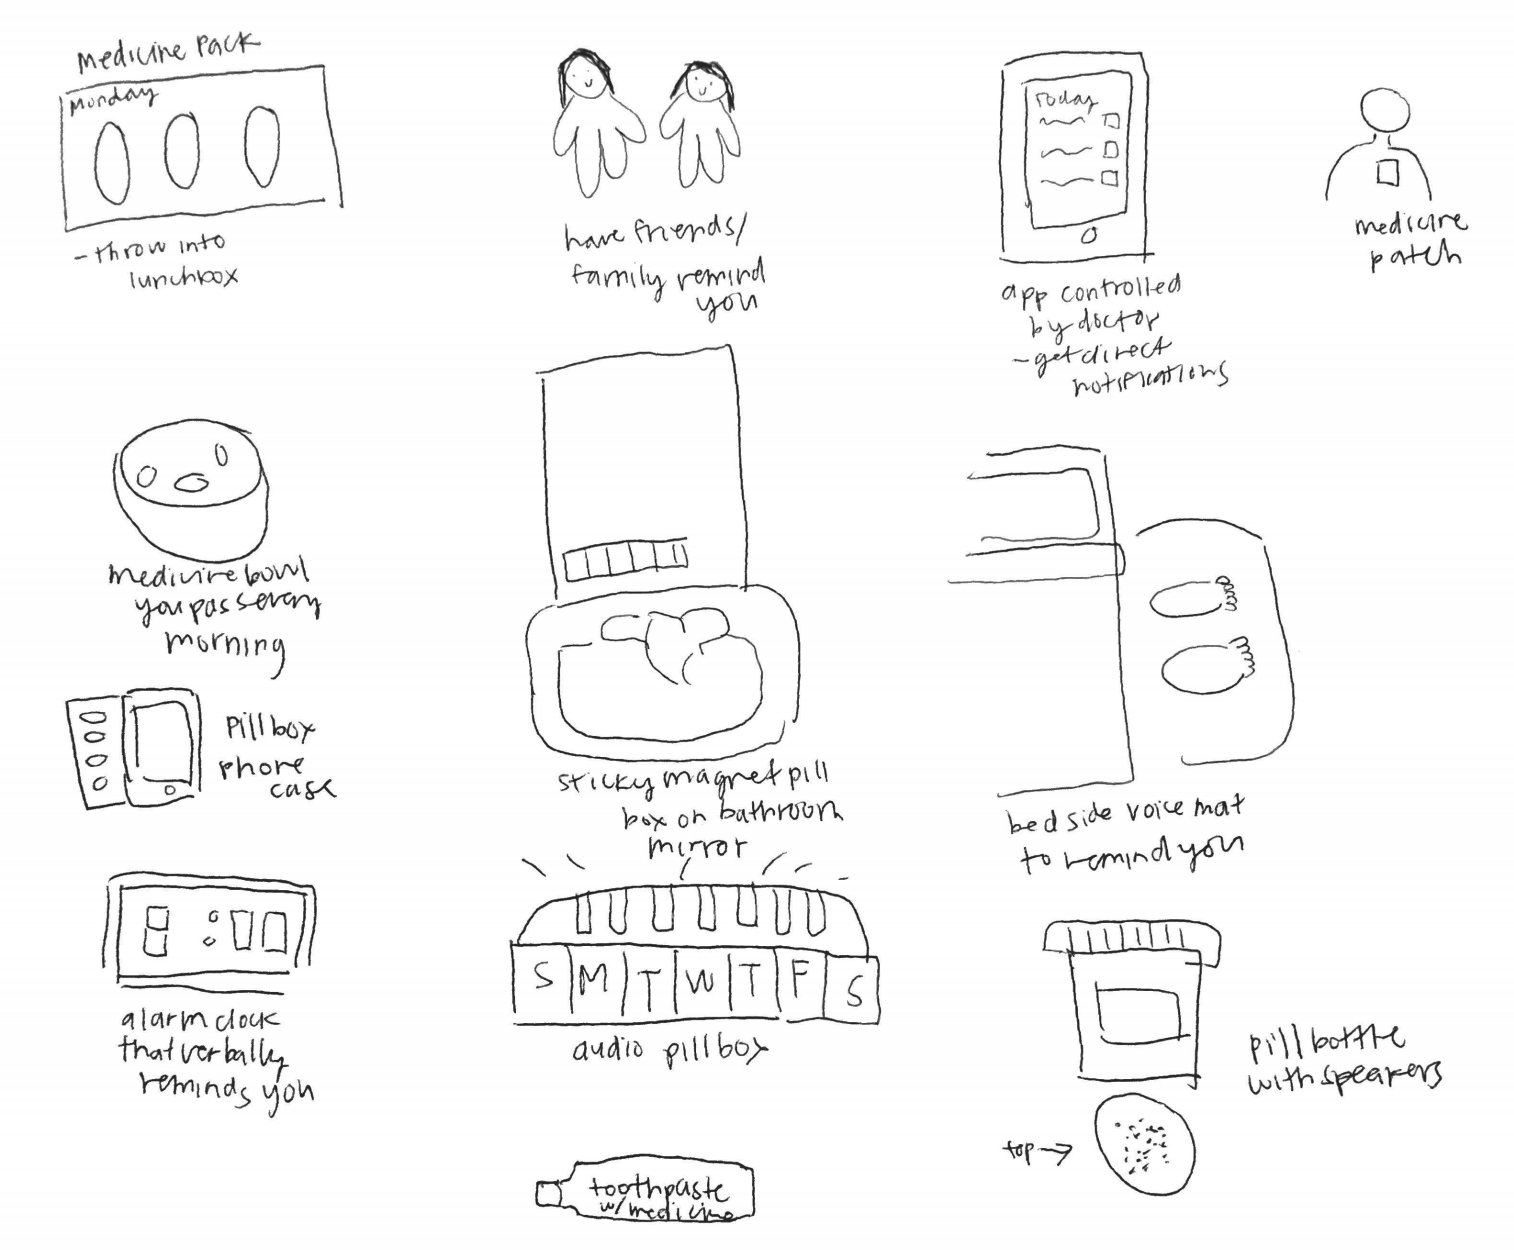 Medicine Pack
Monday
- throw into
lunchbox
have friends/
family remind
you
Today
app controlled
by doctor
- get direct
notifications
medicine
patch
medicine bowl
you pass every
morning
Pill box
phone
case
sticky magnet pill
box on bathroom
mirror
bed side voice mat
to remind you
8:00
alarm clock
that verbally
reminds you
S M T W T F S
audio pillbox
pill bottle
with speakers
top →
toothpaste
w/ medicine